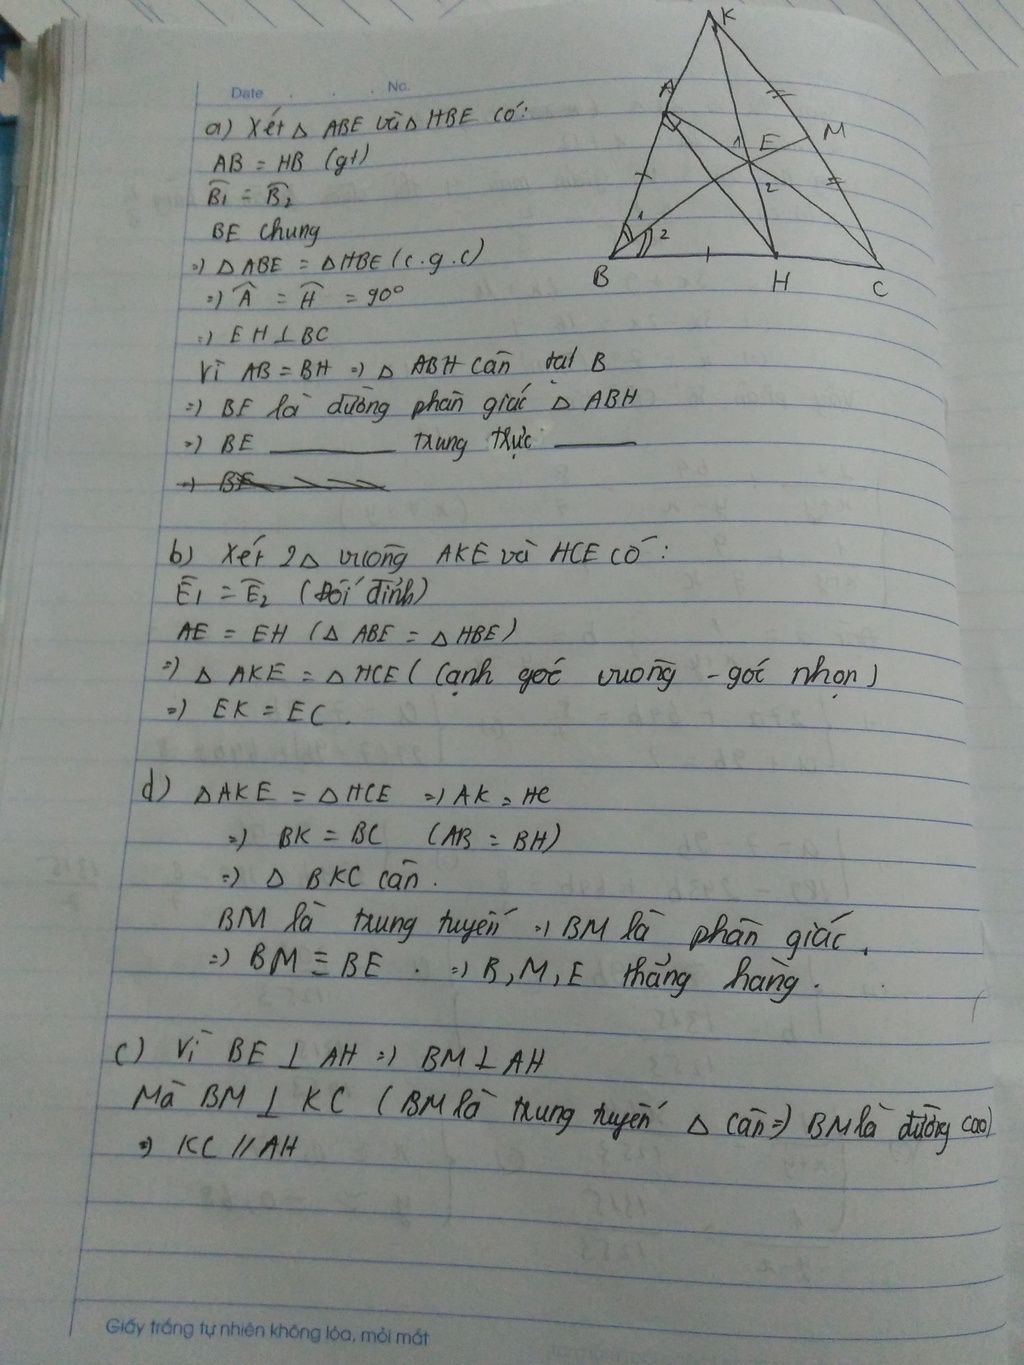 K
Date No.
A
a) Xét △ ABE và △ HBE có:
M
AB = HB (gt)
1 E
B̂1 = B̂2
2
BE chung
1
2
⇒ △ ABE = △ HBE (c.g.c)
B H C
⇒ Â = Ĥ = 90°
⇒ EH ⊥ BC
Vì AB = BH ⇒ △ ABH cân tại B
⇒ BE là đường phân giác △ ABH
⇒ BE ______ trung trực ______
⇒ BE
b) Xét 2 △ vuông AKE và HCE có:
Ê1 = Ê2 (Đối đỉnh)
AE = EH (△ ABE = △ HBE)
⇒ △ AKE = △ HCE (cạnh góc vuông - góc nhọn)
⇒ EK = EC.
d) △ AKE = △ HCE ⇒ AK = HC
⇒ BK = BC (AB = BH)
⇒ △ BKC cân.
BM là trung tuyến ⇒ BM là phân giác.
⇒ BM ≡ BE. ⇒ B, M, E thẳng hàng.
c) Vì BE ⊥ AH ⇒ BM ⊥ AH
Mà BM ⊥ KC (BM là trung tuyến △ cân ⇒ BM là đường cao)
⇒ KC // AH
Giấy trắng tự nhiên không lóa, mỏi mắt